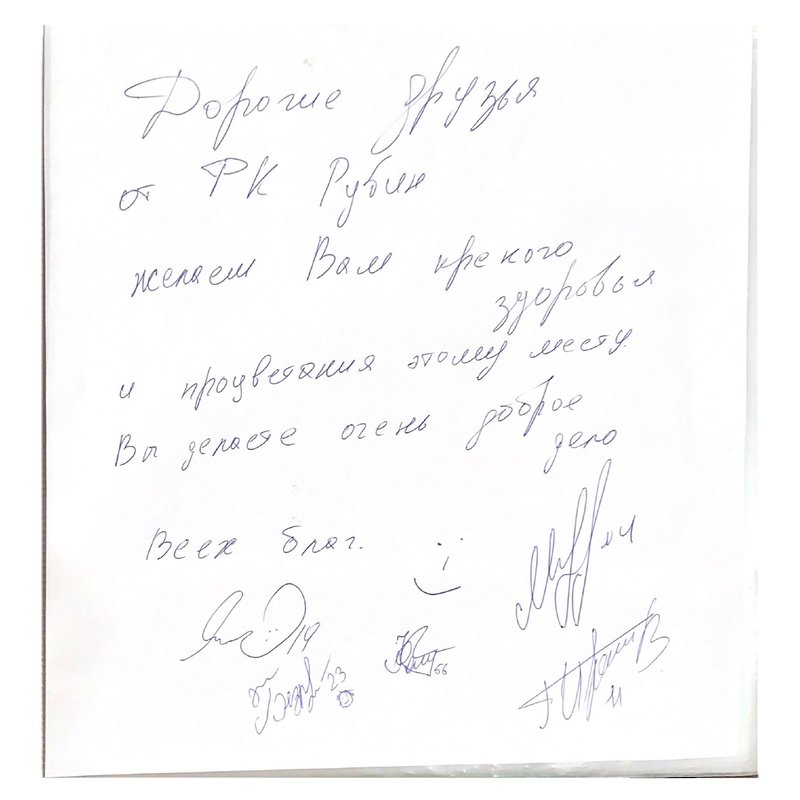 Дорогие друзья
от РК Рубин
желаем Вам крекого
здоровья
и процветания этому месту.
Вы делаете очень доброе
дело
Всех благ.
19
23
66
11